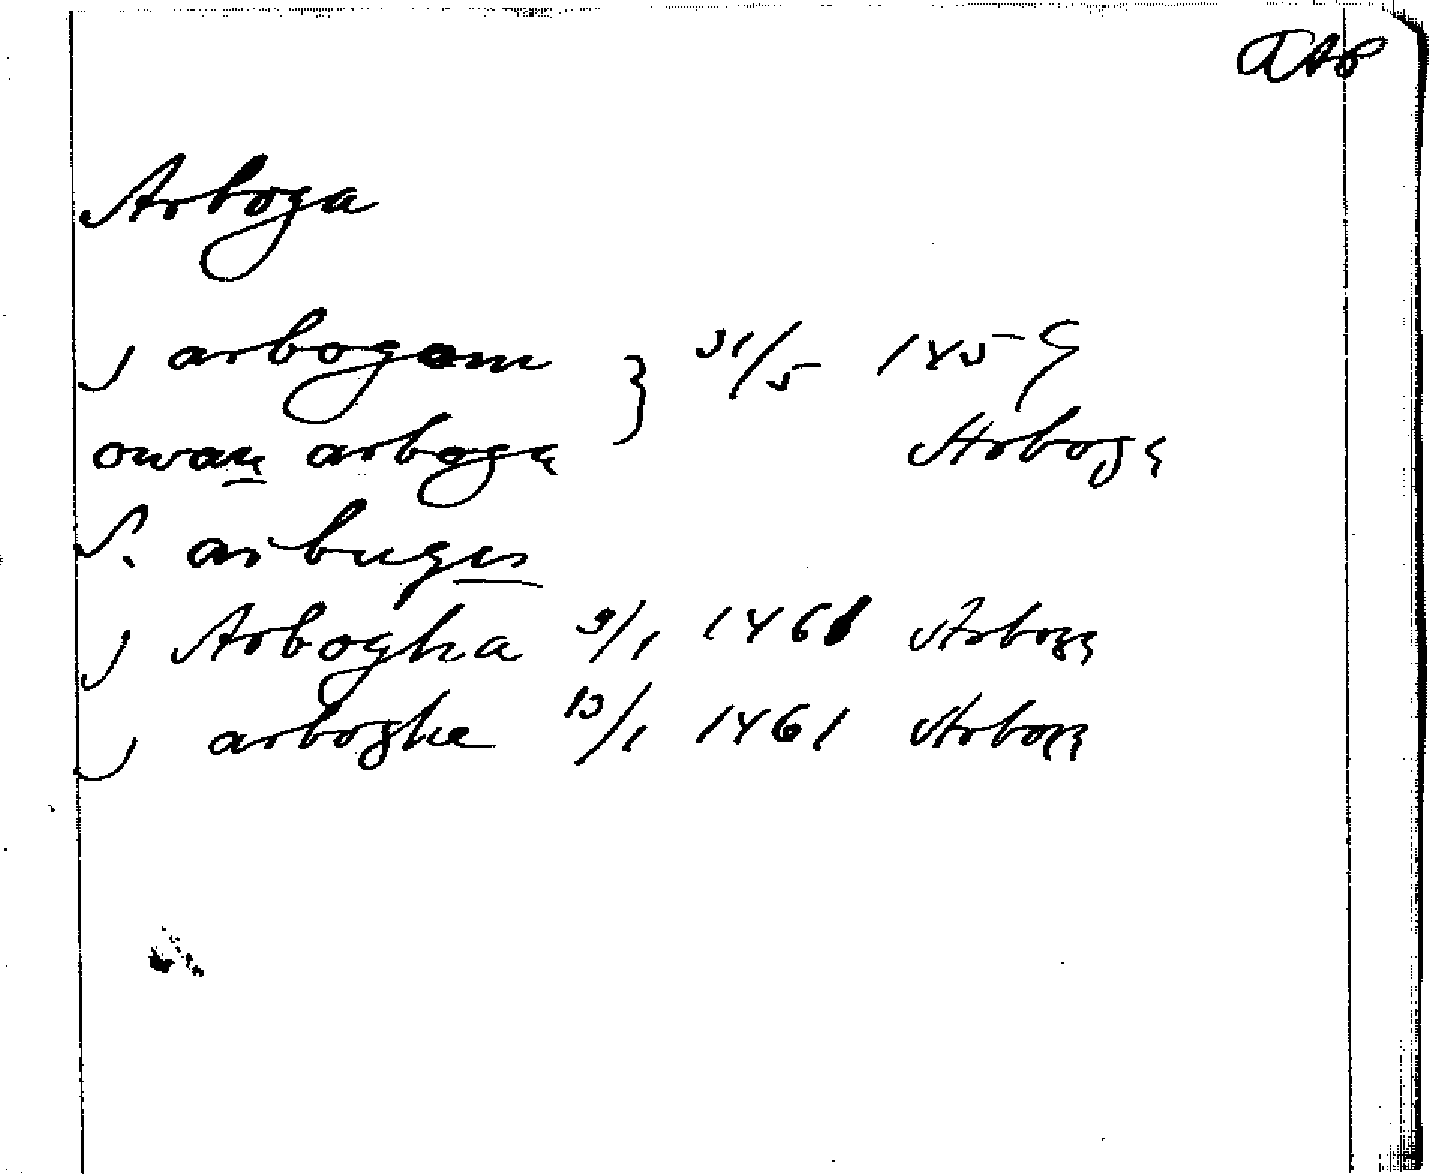 Arboga
j arbogom } 31/5 1459
owan arboga Arboga
S. arbugis
j Arbogha 9/1 1461 Arboga
j arboghe 13/1 1461 Arboga